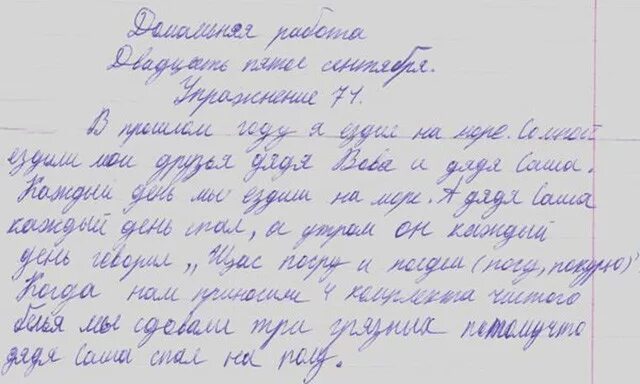 Домашняя работа
Двадцать пятое сентября.
Упражнение 71.
В прошлом году я ездил на море. Со мной
ездили мои друзья дядя Вова и дядя Саша.
Каждый день мы ездили на море. А дядя Саша
каждый день спал, а утром он каждый
день говорил „Щас погру и поедем (
Когда нам приносили 4 комплекта чистого
белья мы сдовали три грязных потомучто
дядя Саша спал на полу.